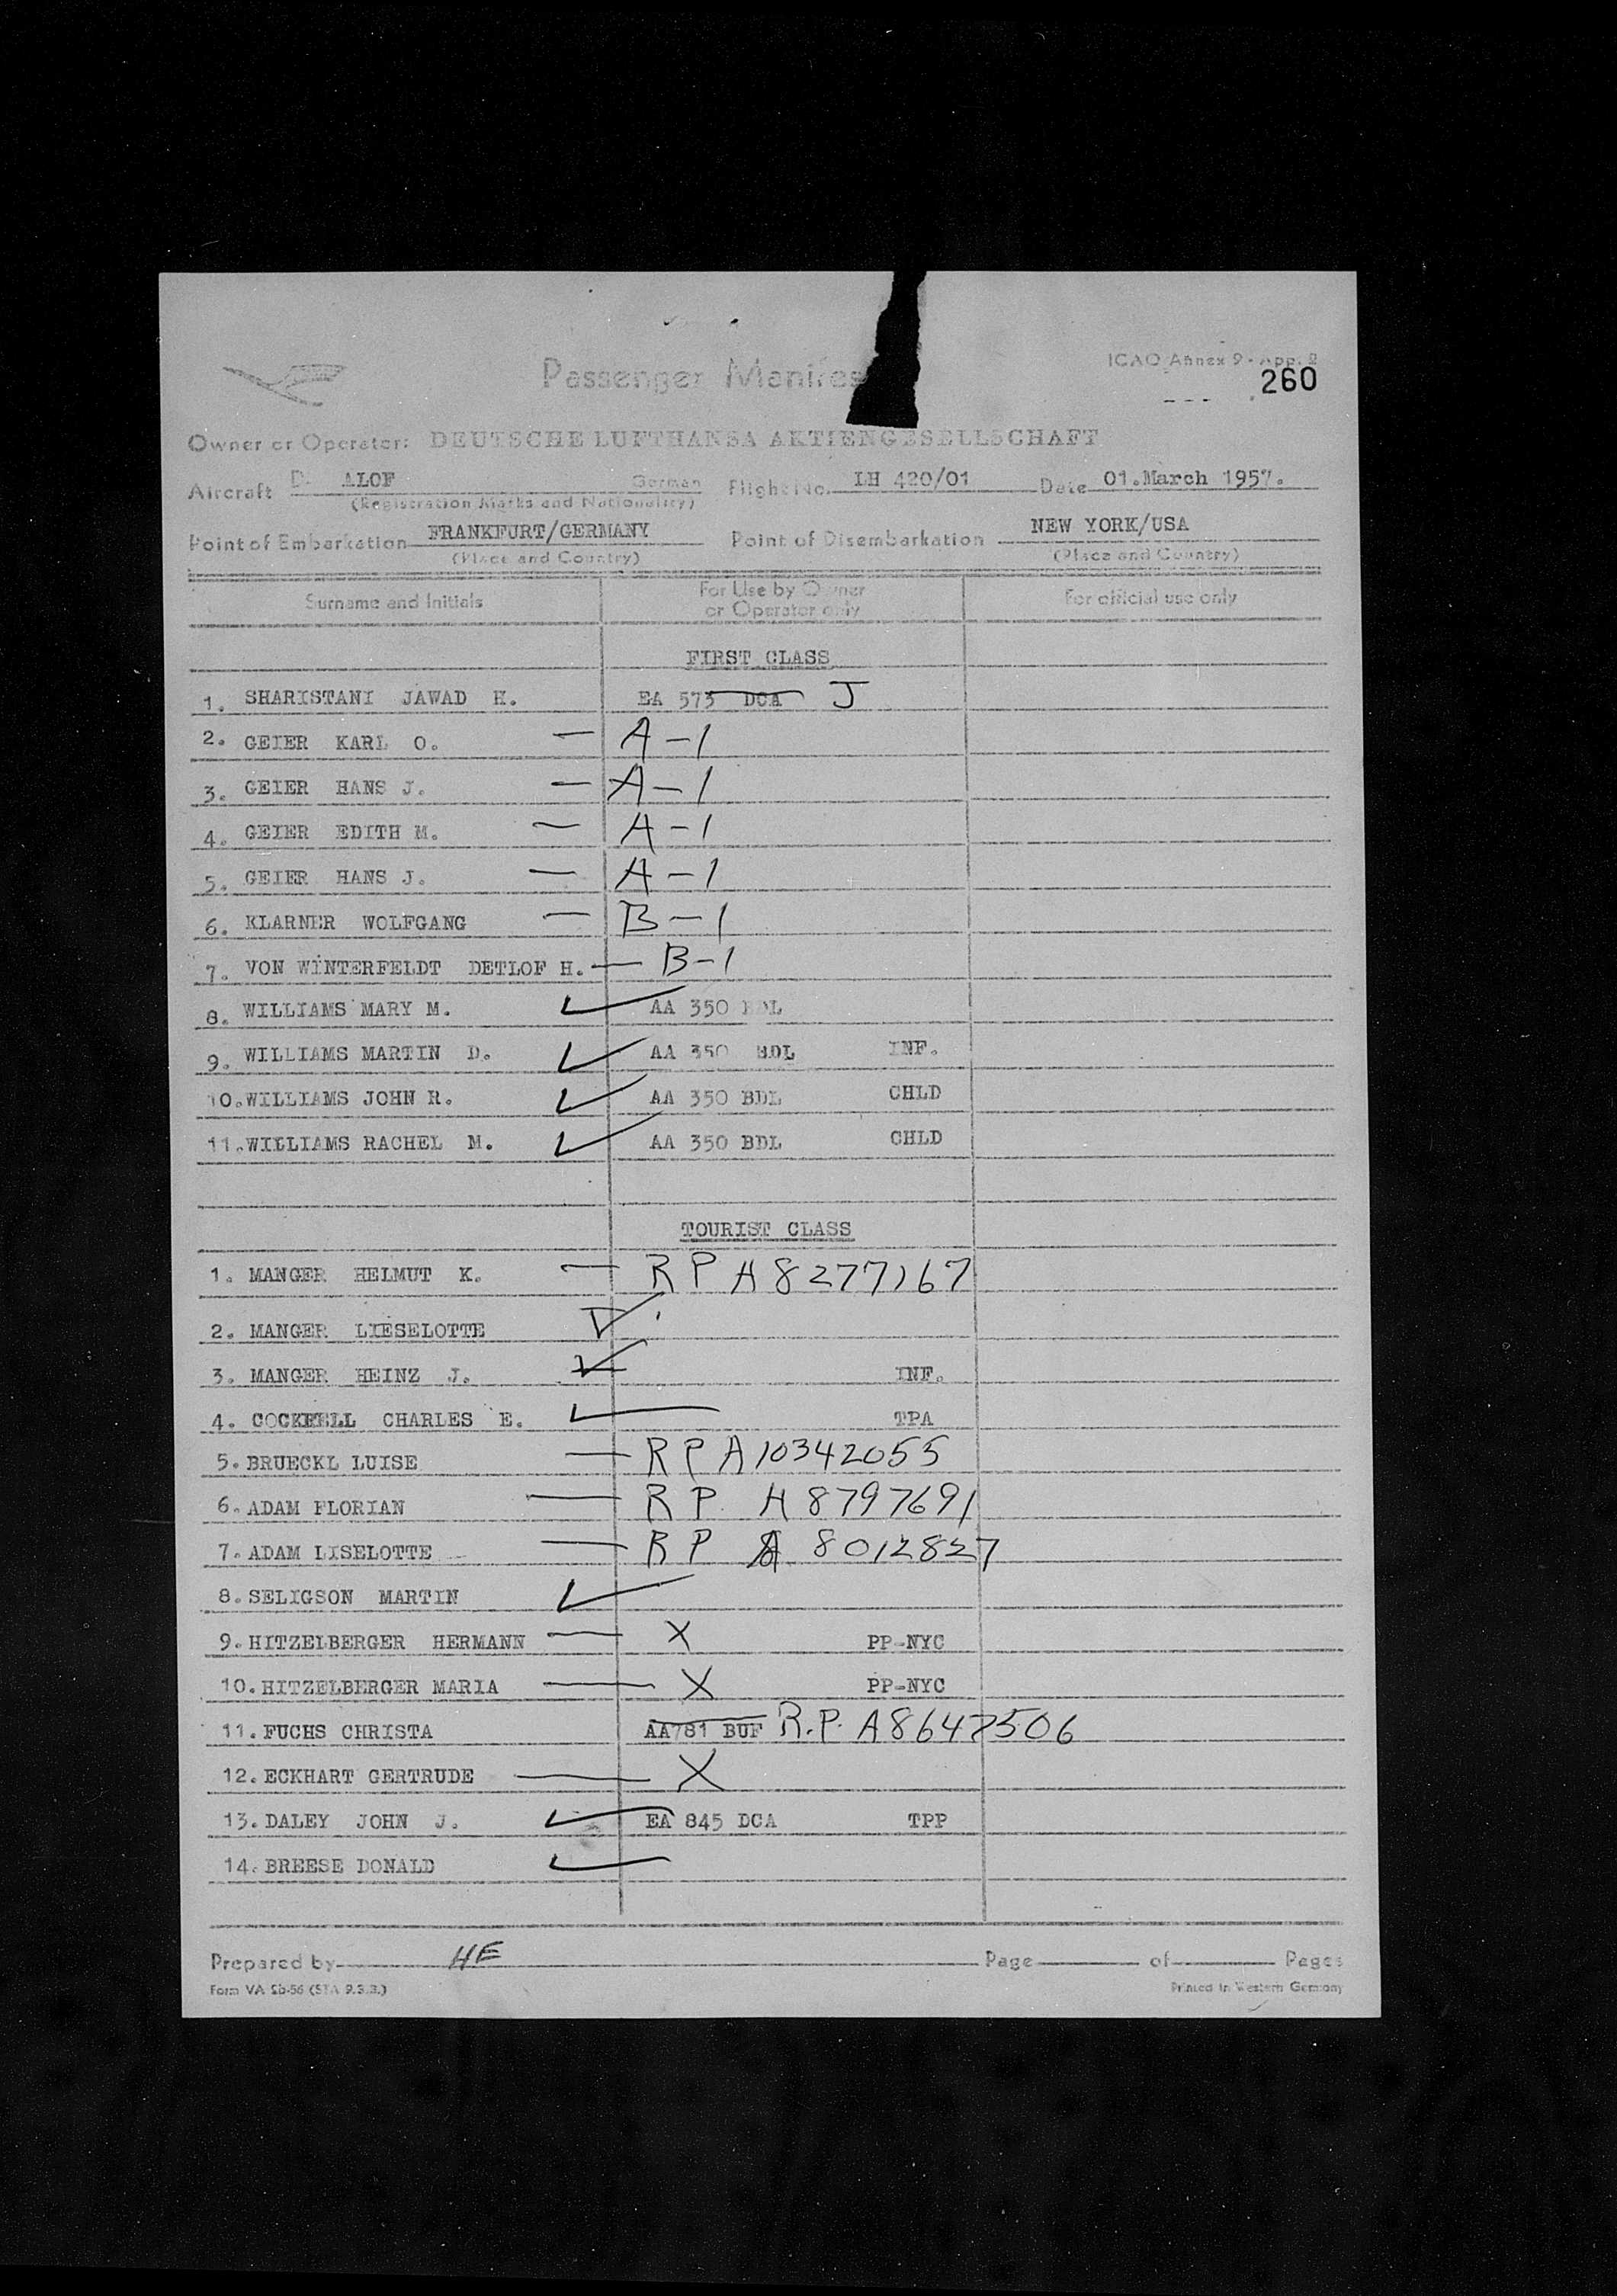 Passenger Manifes
ICAO Annex 9 - App. 2
260
Owner or Operator: DEUTSCHE LUFTHANSA AKTIENGESELLSCHAFT
Aircraft D- ALOF German Flight No. LH 420/01 Date 01.March 1957.
(Registration Marks and Nationality)
Point of Embarkation FRANKFURT/GERMANY Point of Disembarkation NEW YORK/USA
(Place and Country) (Place and Country)
Surname and Initials For Use by Owner or Operator only For official use only
FIRST CLASS
1. SHARISTANI JAWAD H. EA 573 DCA J
2. GEIER KARL O. — A-1
3. GEIER HANS J. — A-1
4. GEIER EDITH M. — A-1
5. GEIER HANS J. — A-1
6. KLARNER WOLFGANG — B-1
7. VON WINTERFELDT DETLOF H. — B-1
8. WILLIAMS MARY M. ✓ AA 350 BDL
9. WILLIAMS MARTIN D. ✓ AA 350 BDL INF.
10. WILLIAMS JOHN R. ✓ AA 350 BDL CHLD
11. WILLIAMS RACHEL M. ✓ AA 350 BDL CHLD
TOURIST CLASS
1. MANGER HELMUT K. — RP A8277167
2. MANGER LIESELOTTE ✓
3. MANGER HEINZ J. ✓ INF.
4. COCKRELL CHARLES E. ✓ TPA
5. BRUECKL LUISE — RP A10342055
6. ADAM FLORIAN — RP A8797691
7. ADAM LISELOTTE — RP A 8012827
8. SELIGSON MARTIN ✓
9. HITZELBERGER HERMANN — X PP-NYC
10. HITZELBERGER MARIA — X PP-NYC
11. FUCHS CHRISTA AA781 BUF R.P. A8647506
12. ECKHART GERTRUDE — X
13. DALEY JOHN J. ✓ EA 845 DCA TPP
14. BREESE DONALD ✓
Prepared by HE Page of Pages
Form VA 2b-56 (STA 9.3.3.) Printed in Western Germany